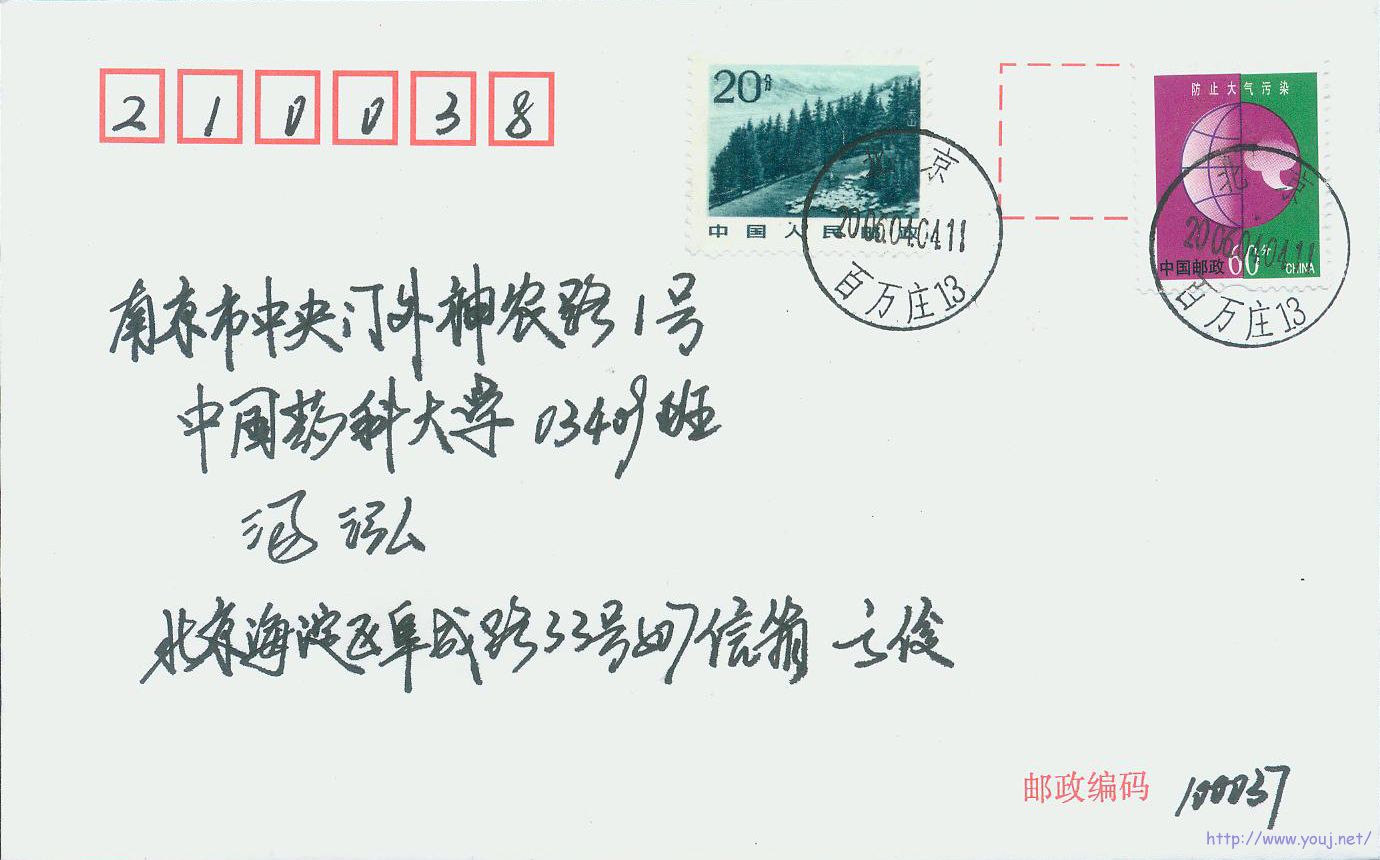 210038
20分
中国人民邮政
北京
2006.04.04.11
百万庄13
防止大气污染
中国邮政 60分 CHINA
北京
2006.04.04.11
百万庄13
南京市中央门外神农路1号
中国药科大学 03409班
泓
北京海淀区阜成路33号 信箱 方俊
邮政编码 100037
http://www.youj.net/